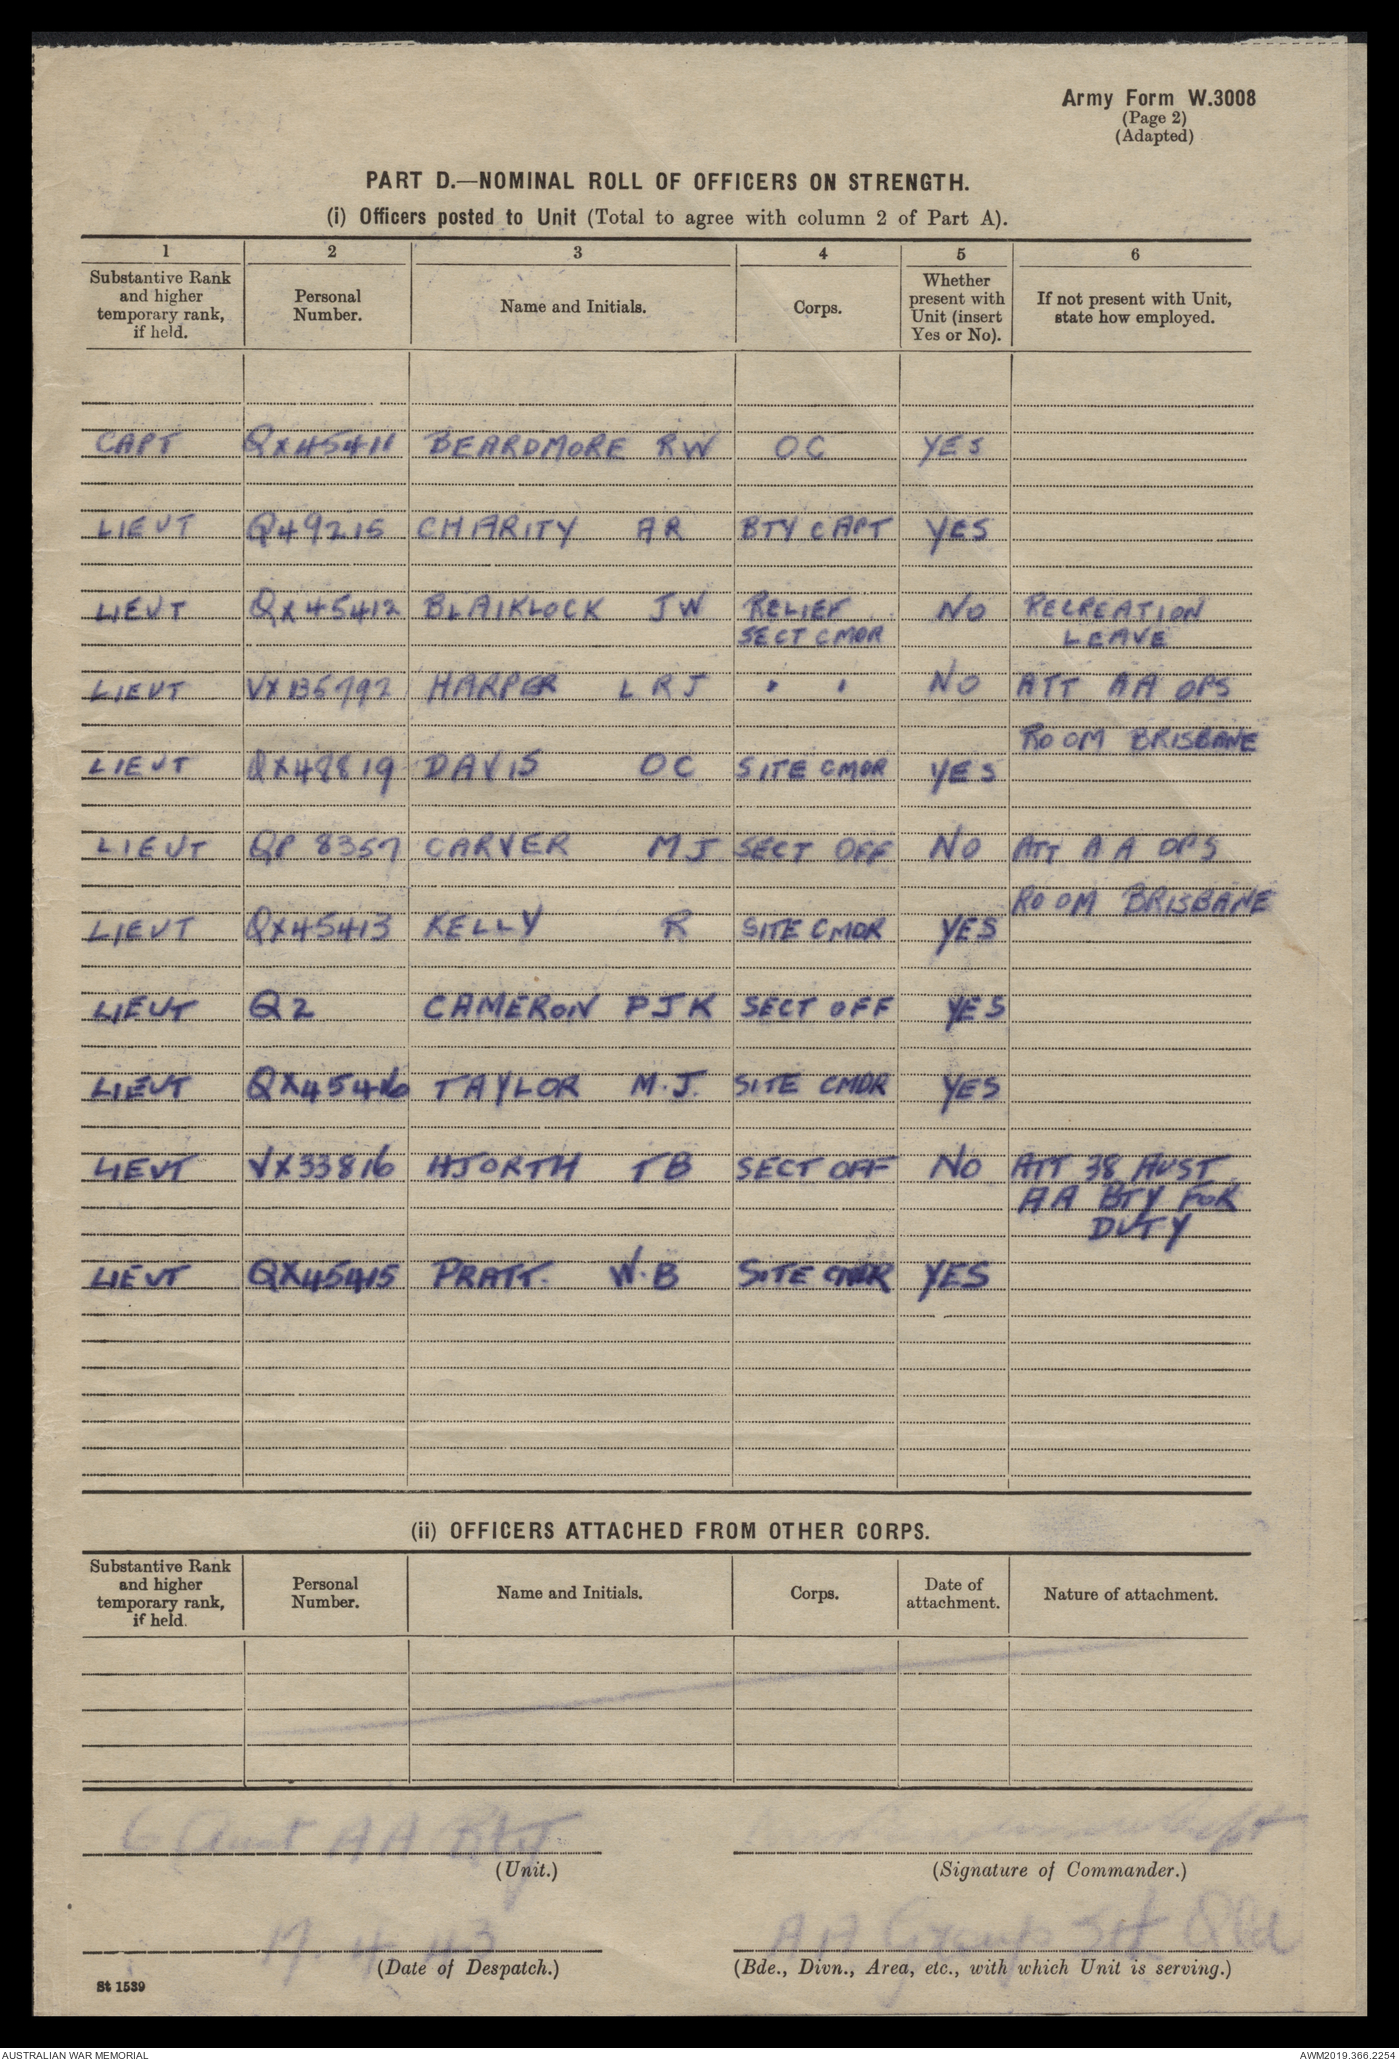 Army Form W.3008
(Page 2)
(Adapted)
PART D.—NOMINAL ROLL OF OFFICERS ON STRENGTH.
(i) Officers posted to Unit (Total to agree with column 2 of Part A).
1 2 3 4 5 6
Substantive Rank and higher temporary rank, if held. Personal Number. Name and Initials. Corps. Whether present with Unit (insert Yes or No). If not present with Unit, state how employed.
CAPT QX45411 BEARDMORE RW OC YES
LIEUT Q49215 CHARITY AR BTY CAPT YES
LIEUT QX45412 BLAIKLOCK JW RELIEF NO RECREATION
SECT CMDR LEAVE
LIEUT VX135792 HARPER LRJ " " NO ATT AA OPS
ROOM BRISBANE
LIEUT QX48819 DAVIS OC SITE CMDR YES
LIEUT QP 8357 CARVER MJ SECT OFF NO ATT AA OPS
ROOM BRISBANE
LIEUT QX45413 KELLY R SITE CMDR YES
LIEUT Q2 CAMERON PJK SECT OFF YES
LIEUT QX45416 TAYLOR M.J. SITE CMDR YES
LIEUT VX33816 HJORTH TB SECT OFF NO ATT 38 AUST
AA BTY FOR
DUTY
LIEUT QX45415 PRATT. W.B SITE CMDR YES
(ii) OFFICERS ATTACHED FROM OTHER CORPS.
Substantive Rank and higher temporary rank, if held. Personal Number. Name and Initials. Corps. Date of attachment. Nature of attachment.
6 Aust AA Bty Capt
(Unit.) (Signature of Commander.)
17.4.43 AA Group Qld
(Date of Despatch.) (Bde., Divn., Area, etc., with which Unit is serving.)
St 1539
AUSTRALIAN WAR MEMORIAL AWM2019.366.2254